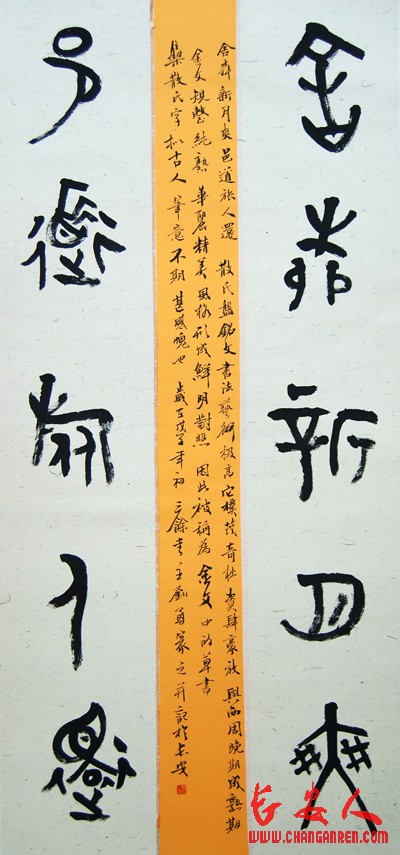 舍
新
月
爽
邑
道
旅
人
還
舍 新月爽 邑道旅人還 散氏盤銘文書法藝術极高它樸茂奇壯 肆豪放 與西周晚期成熟期
金文規整純熟 華麗精美 風格形成鮮明對照 因此被稱為金文中的草書
集散氏字 擬古人筆意不期 甚感愧也 歲在 年初 三餘 主劉勇篆之并記於長安
長安人
WWW.CHANGANREN.COM